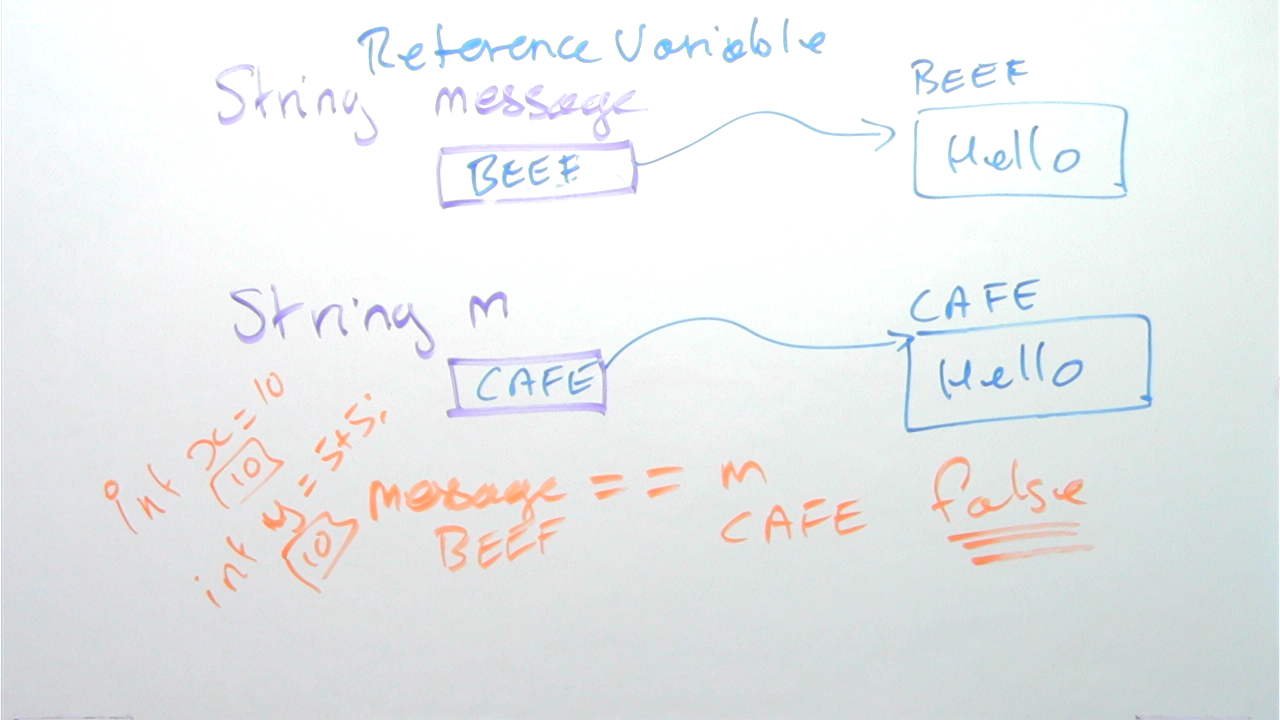 Reference Variable
String message
BEEF
BEEF
Hello
String m
CAFE
CAFE
Hello
int x = 10
10
int y = 5+5;
10
message == m
BEEF
CAFE
false